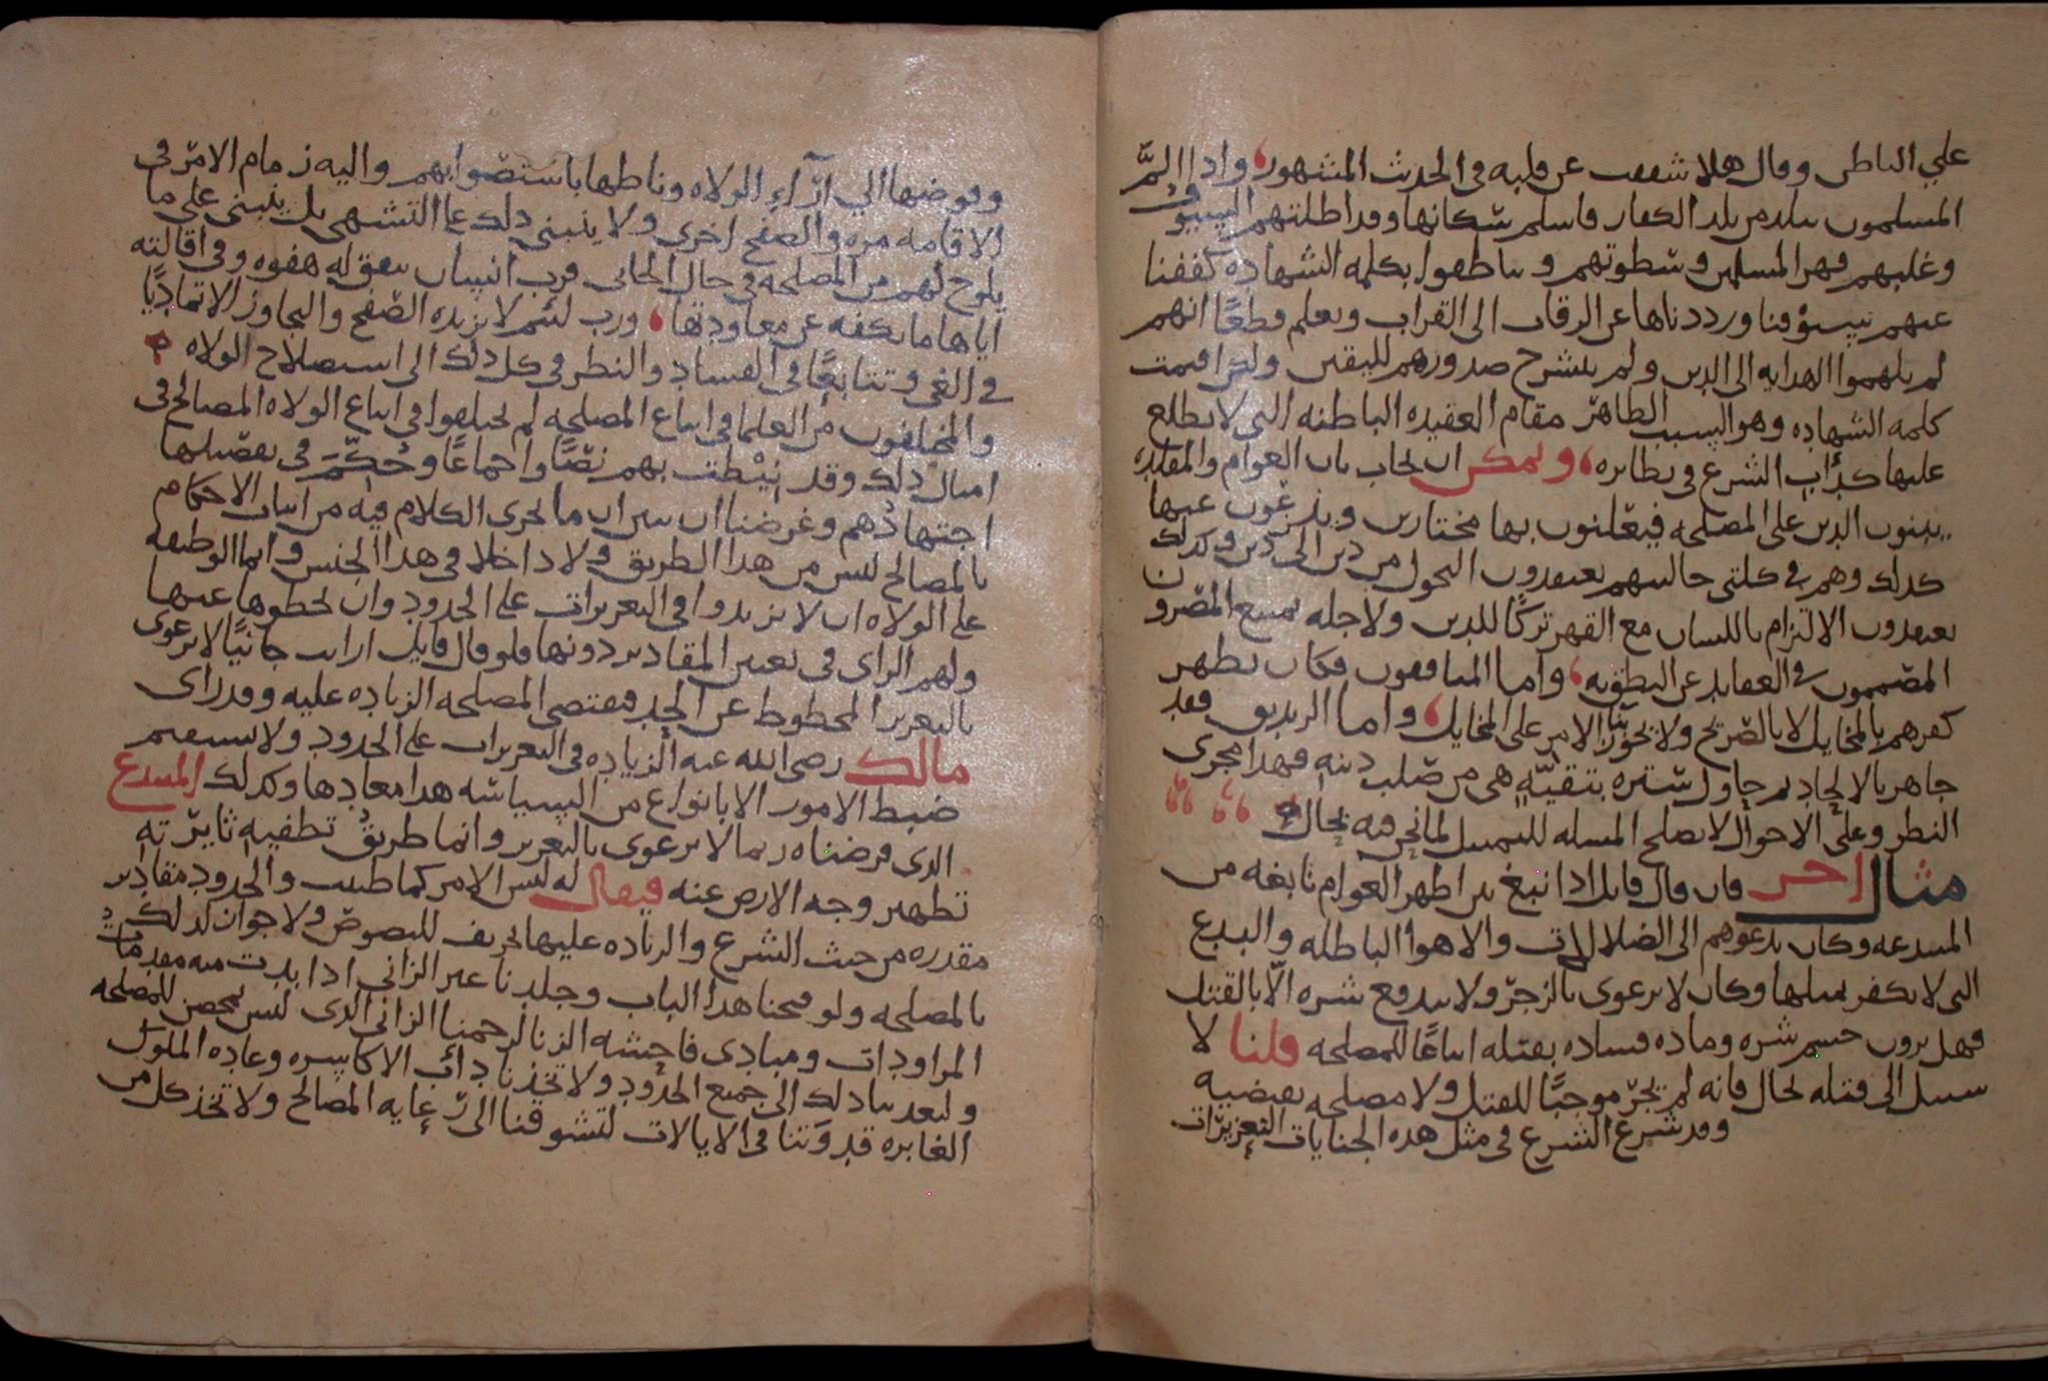 علي الباطن وقال هلا شققت عن قلبه في الحديث المشهور، واذا الم
المسلمون ببلد من بلد الكفار فاسلم سكانها وقد اظلتهم السيوف
وغلبهم قهر المسلمين وسطوتهم وتناطقوا بكلمه الشهاده كففنا
عنهم سيوفنا ورددناها عن الرقاب الى القراب ونعلم قطعًا انهم
لم يلهموا الهدايه الى الدين ولم ينشرح صدورهم لليقين ولكن اقيمت
كلمه الشهاده وهو السبب الظاهر مقام العقيده الباطنه التي لا يطلع
عليها كدأب الشرع في نظايره، ويمكن ان يجاب بان العوام والمقلده
يبنون الدين على المصلحه فيعلنون بها مختارين وينزعون عنها
كذلك وهم في كلتى حالتيهم يعتقدون التحول من دين الى دين وكذلك
يعتقدون الالتزام باللسان مع القهر تركًا للدين ولاجله يمتنع المصرون
المصممون في العقايد عن النطق به، واما المنافقون فكان يظهر
كفرهم بالمخايل لا بالصريح ولا يجوز بنا الامر على المخايل، واما الزنديق فقد
جاهر بالالحاد ثم حاول ستره بتقيّهٍ هي من صلب دينه فهذا مجرى
النظر وعلى الاحوال لا تصلح المسله للتمسك لما نحن فيه بحال
مثال اخر فان قال قايل اذا نبغ بين اظهر العوام نابغه من
المبتدعه وكان يدعوهم الى الضلالات والاهوا الباطله والبدع
التي لا يكفر بمثلها وكان لا يرعوى بالزجر ولا يندفع شره الّا بالقتل
فهل ترون حسم شره وماده فساده بقتله اتباعًا للمصلحه قلنا لا
سبيل الى قتله بحال فانه لم يجرّ موجبًا للقتل ولا مصلحه تقتضيه
وقد شرع الشرع في مثل هذه الجنايات التعزيرات
وفوضها الي آرآءِ الولاه وناطها باستصوابهم واليه زمام الامر في
الاقامه مره والصفح اخرى ولا ينبني ذلك علي التشهى بل ينبني على ما
يلوح لهم من المصلحه في حال الجاني فرب انسان تتفق له هفوه وفي اقالته
اياها ما يكفه عن معاودتها، ورب لئيم لا يزيده الصفح والتجاوز الا تماديًا
في الغي وتتابعًا في الفساد والنظر في كل ذلك الى استصلاح الولاه
والمختلفون من العلما في اتباع المصلحه لم يختلفوا في اتباع الولاه المصالح في
امثال ذلك وقد نيطت بهم نصًا واجماعًا وحُكّمَ في تفصيلها
اجتهادُهم وغرضنا ان نبين ان ما يجرى الكلام فيه من اثبات الاحكام
بالمصالح ليس من هذا الطريق ولا داخلا في هذا الجنس وانما الوظيفه
على الولاه ان لا يزيدوا في التعزيرات على الحدود وان يحطوها عنها
ولهم الراى في تعيين المقادير دونها فلو قال قايل ارايت جانيًا لا يرعوى
بالتعزير المحطوط عن الحد فتقتضى المصلحه الزياده عليه وقد راى
مالك رضى الله عنه الزياده في التعزيرات على الحدود ولا يستقيم
ضبط الامور الا بانواع من السياسه هذا معادها وكذلك المبتدع
الذى فرضناه ربما لا يرعوى بالتعزير وانما طريق تطفيه ثايرته
تطهير وجه الارض عنه فيقال له ليس الامر كما ظننت والحدود مقادير
مقدره من حيث الشرع والزياده عليها تحريف للنصوص ولا جواز لذلك
بالمصلحه ولو فتحنا هذا الباب وجلدنا غير الزاني اذا بدت منه مقدماتُ
المراودات ومبادى فاحشه الزنا لرجمنا الزاني الذى ليس بمحصن للمصلحه
ولتعدينا ذلك الى جميع الحدود ولاتخذنا دأب الاكاسره وعاده الملوك
الغابره قدوتنا في الايالات لتشوفنا الى رعايه المصالح ولاتخذ كل من